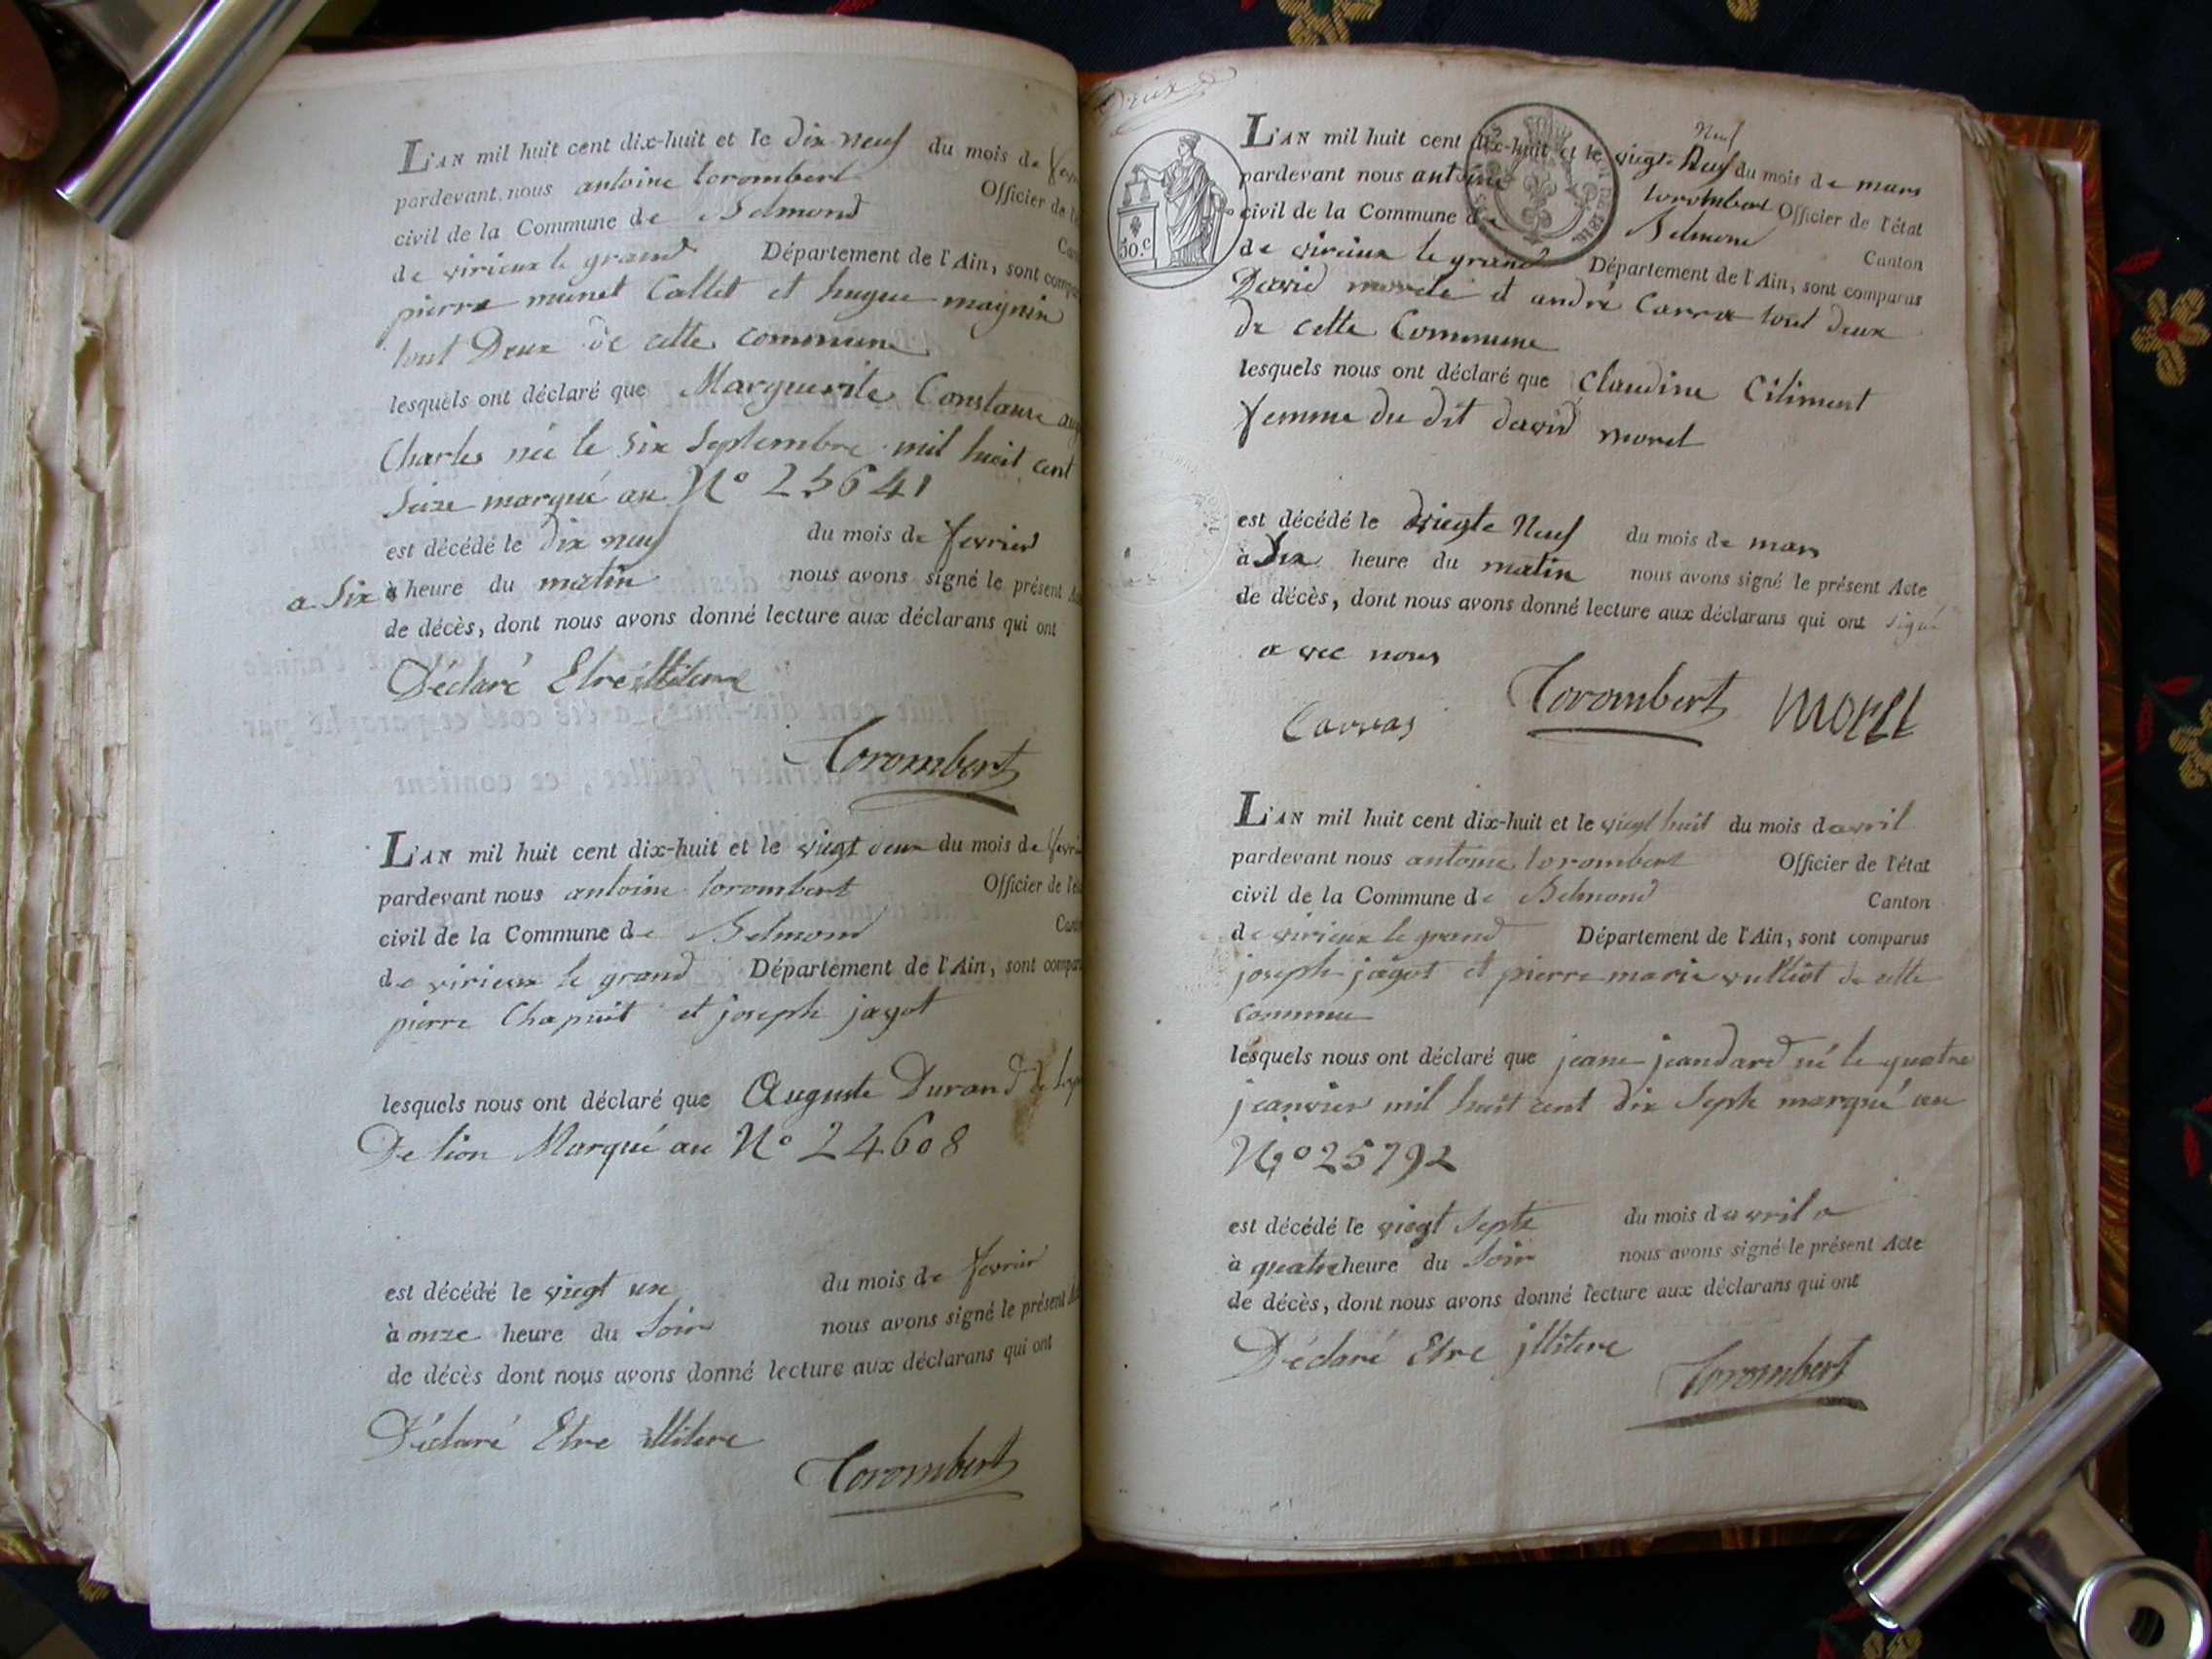 L'AN mil huit cent dix-huit et le dix neuf du mois de
pardevant nous antoine torombert Officier de
civil de la Commune de Belmond
de virieux le grand Département de l'Ain, sont
pierre munet Callet et hugue magnin
tout Deux de cette commune
lesquels ont déclaré que Marguerite Constance
Charles née le six Septembre mil huit cent
Seize marqué au N° 25641
est décédé le dix neuf du mois de fevrier
a Six à heure du matin nous avons signé le présent
de décès, dont nous avons donné lecture aux déclarans qui ont
Déclaré Etre illitere
Torombert
L'AN mil huit cent dix-huit et le viegt deux du mois de
pardevant nous antoine torombert Officier de
civil de la Commune de Belmond
de virieux le grand Département de l'Ain, sont
pierre Chapuit et joseph jagot
lesquels nous ont déclaré que Auguste Durand
De lion Marqué au N° 24608
est décédé le viegt un du mois de fevrier
à onze heure du Soir nous avons signé le présent
de décès dont nous avons donné lecture aux déclarans qui ont
Déclaré Etre illitere
Torombert
Deux
Neuf
L'AN mil huit cent dix-huit et le viegt Neuf du mois de mars
pardevant nous antoine torombert Officier de l'état
civil de la Commune de Belmond Canton
50.C
de virieux le grand Département de l'Ain, sont comparus
David et andré Carra tout deux
de cette Commune
lesquels nous ont déclaré que Claudine Ciliment
femme du dit david morel
est décédé le viegte Neuf du mois de mars
à heure du matin nous avons signé le présent Acte
de décès, dont nous avons donné lecture aux déclarans qui ont signé
avec nous
Carras Torombert morel
L'AN mil huit cent dix-huit et le viegt huit du mois davril
pardevant nous antoine torombert Officier de l'état
civil de la Commune de Belmond Canton
de virieux le grand Département de l'Ain, sont comparus
joseph jagot et pierre marie vulliot de cette
commune
lesquels nous ont déclaré que jeane jeandard né le quatre
jeanvier mil huit cent dix Septe marqué au
N° 25792
est décédé le viegt Septe du mois davril a
à quatre heure du Soir nous avons signé le présent Acte
de décès, dont nous avons donné lecture aux déclarans qui ont
Déclaré Etre jllitere
Torombert